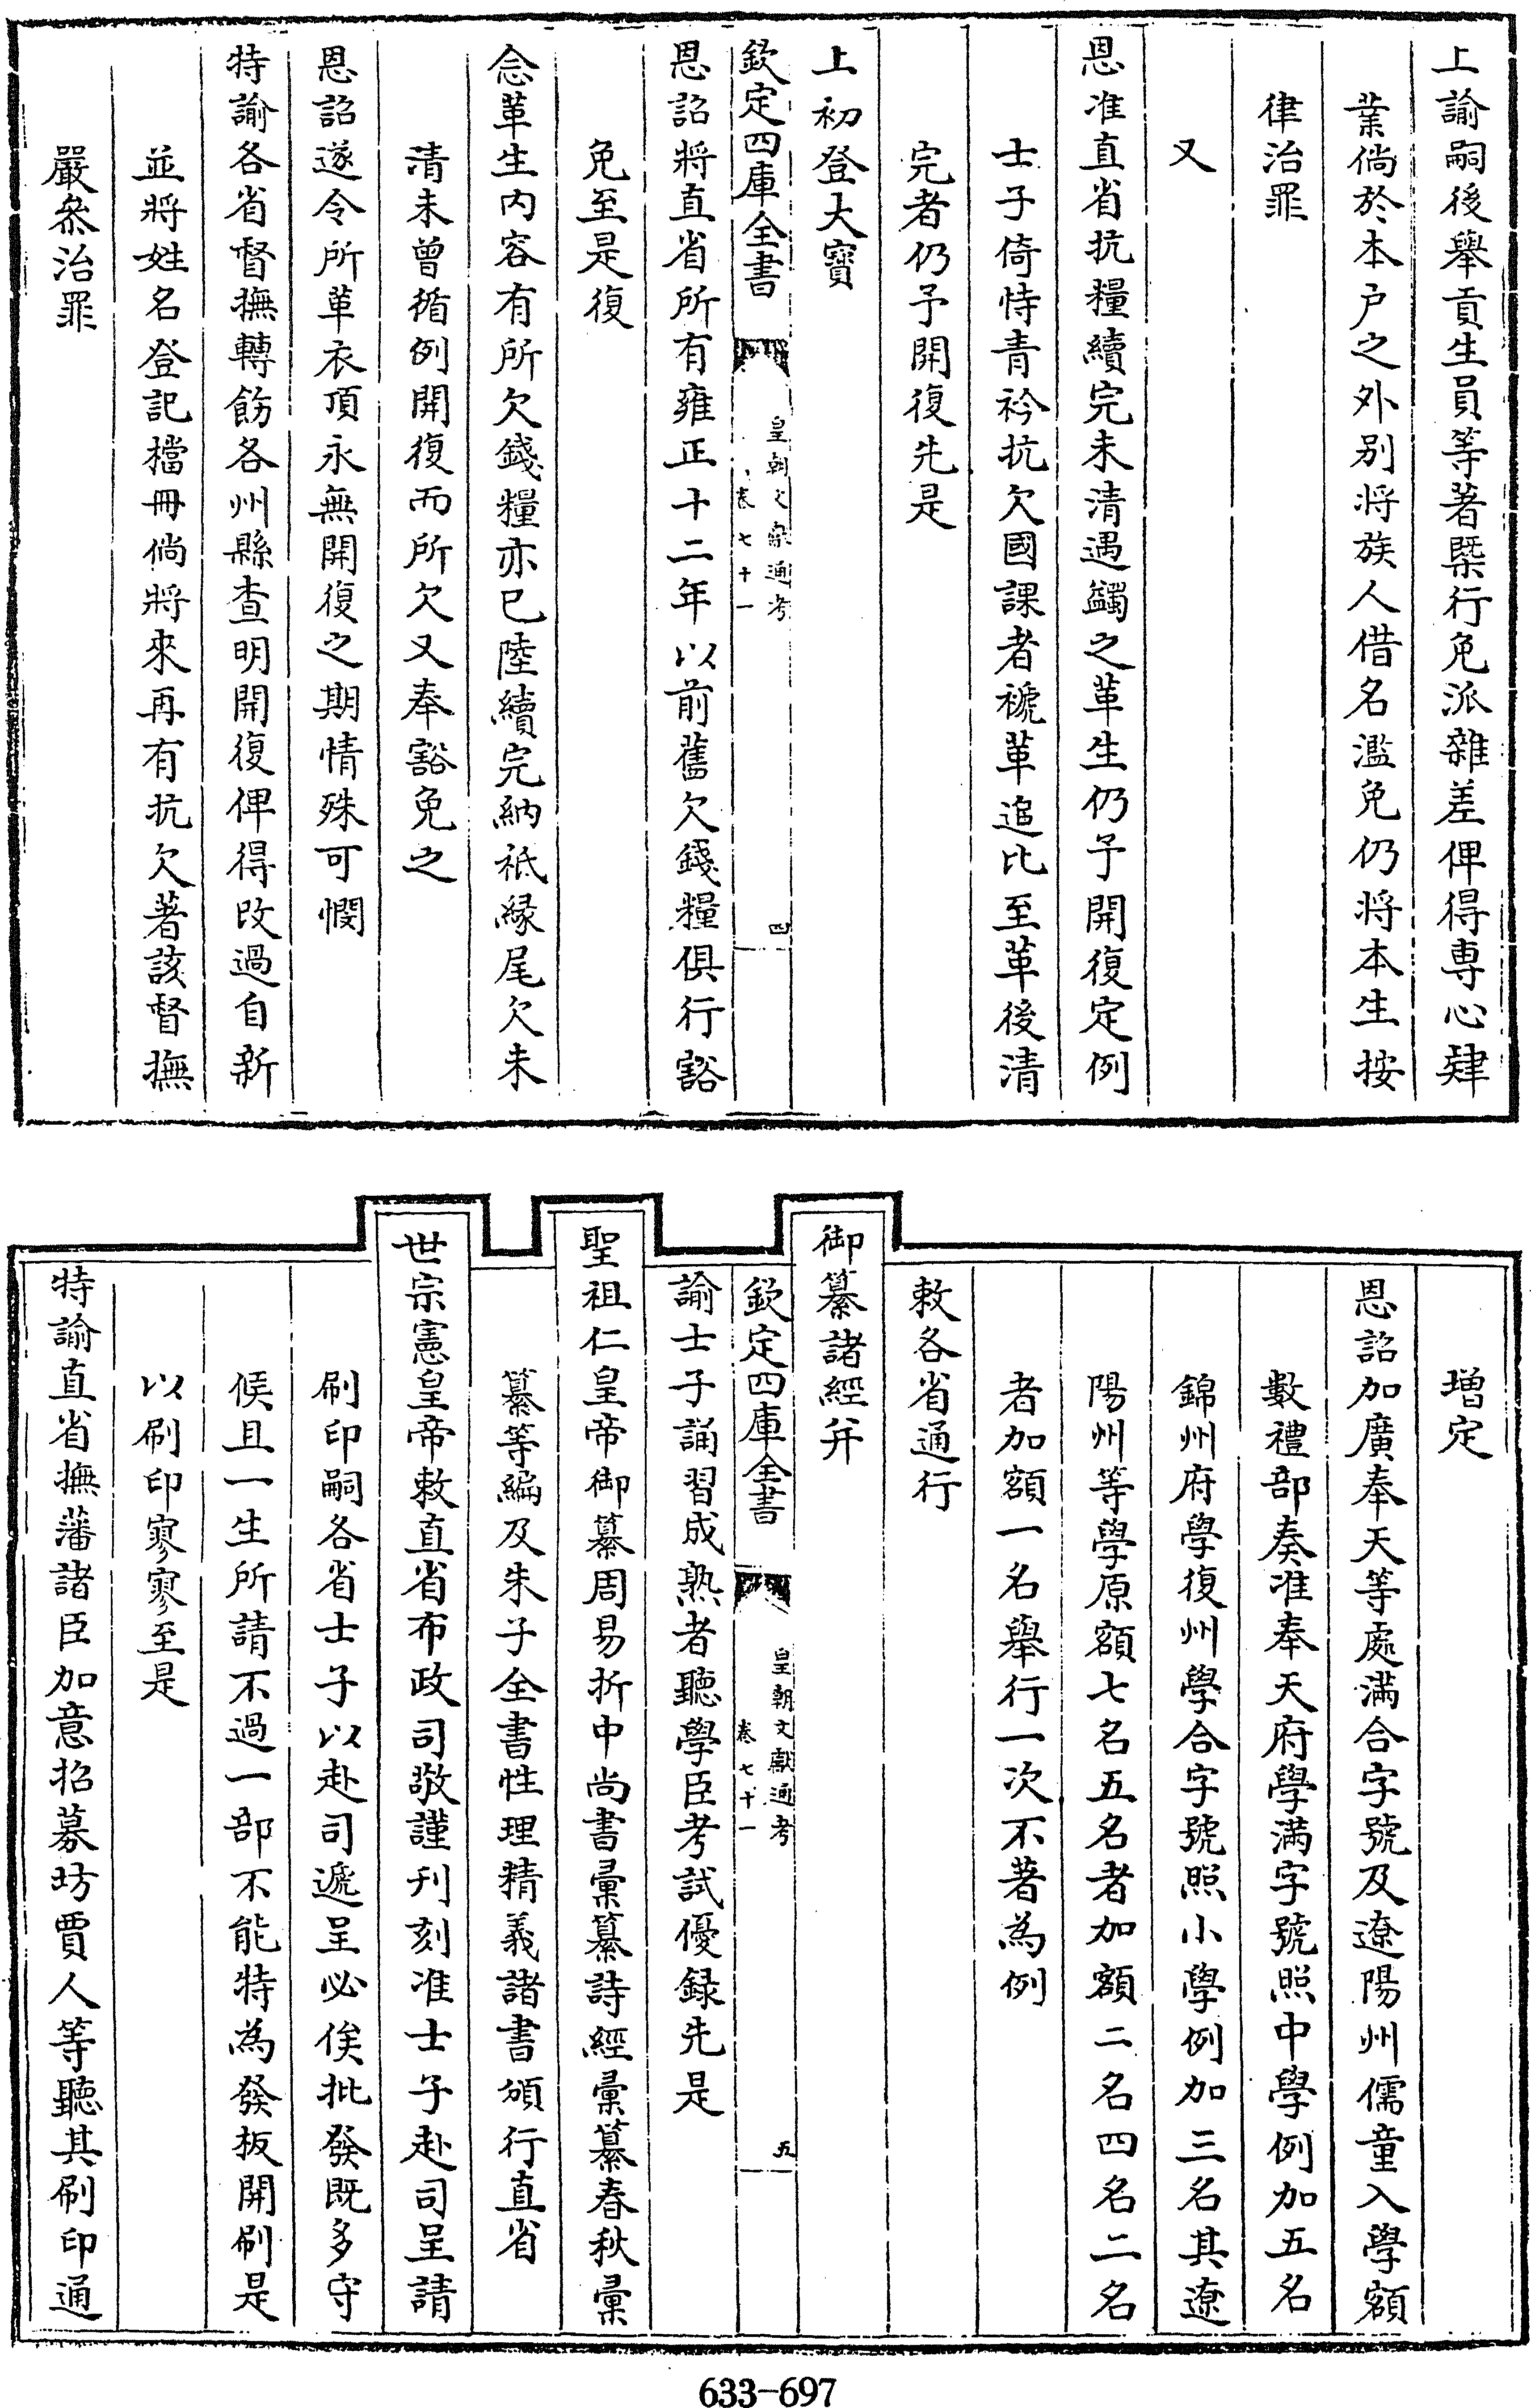 上諭嗣後舉貢生員等著槩行免派雜差俾得專心肄
業倘於本户之外别將族人借名濫免仍將本生按
律治罪
又
恩准直省抗糧續完未清遇蠲之革生仍予開復定例
士子倚恃青衿抗欠國課者褫革追比至革後清
完者仍予開復先是
上初登大寳
欽定四庫全書
皇朝文獻通考
卷七十一
四
恩詔將直省所有雍正十二年以前舊欠錢糧俱行豁
免至是復
念革生内容有所欠錢糧亦已陸續完納祇緣尾欠未
清未曾循例開復而所欠又奉豁免之
恩詔遂令所革衣頂永無開復之期情殊可憫
特諭各省督撫轉飭各州縣查明開復俾得改過自新
並將姓名登記檔冊倘將來再有抗欠著該督撫
嚴叅治罪
增定
恩詔加廣奉天等處滿合字號及遼陽州儒童入學額
數禮部奏准奉天府學滿字號照中學例加五名
錦州府學復州學合字號照小學例加三名其遼
陽州等學原額七名五名者加額二名四名二名
者加額一名舉行一次不著為例
敕各省通行
御纂諸經幷
欽定四庫全書
皇朝文獻通考
卷七十一
五
諭士子誦習成熟者聽學臣考試優録先是
聖祖仁皇帝御纂周易折中尚書彚纂詩經彚纂春秋彚
纂等編及朱子全書性理精義諸書頒行直省
世宗憲皇帝敕直省布政司敬謹刊刻准士子赴司呈請
刷印嗣各省士子以赴司遞呈必俟批發既多守
候且一生所請不過一部不能特為發板開刷是
以刷印寥寥至是
特諭直省撫藩諸臣加意招募坊賈人等聽其刷印通
633-697